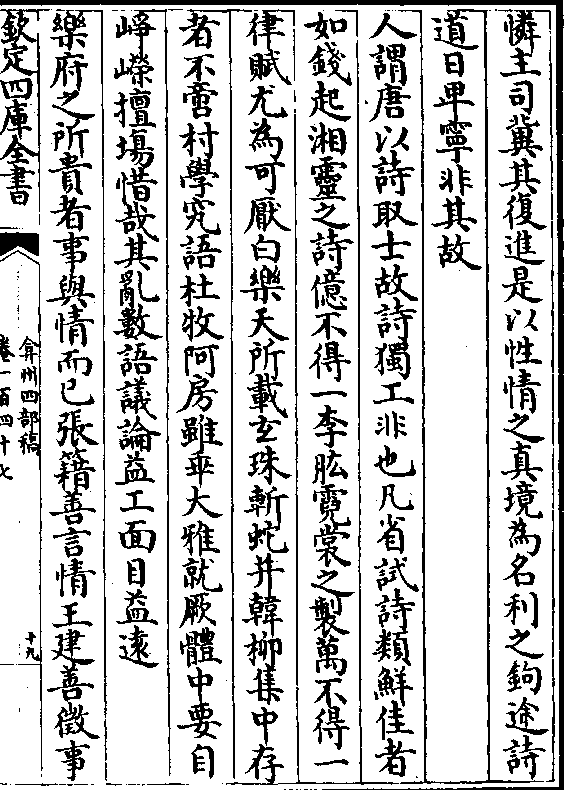 憐主司冀其復進是以性情之真境為名利之鉤途詩
道日卑寧非其故
人謂唐以詩取士故詩獨工非也凡省試詩類鮮佳者
如錢起湘靈之詩億不得一李肱霓裳之製萬不得一
律賦尤為可厭白樂天所載玄珠斬蛇并韓柳集中存
者不啻村學究語杜牧阿房雖乖大雅就厥體中要自
崢嶸擅塲惜哉其亂數語議論益工面目益遠
樂府之所貴者事與情而已張籍善言情王建善徵事
欽定四庫全書
弇州四部稿
卷一百四十七
十九